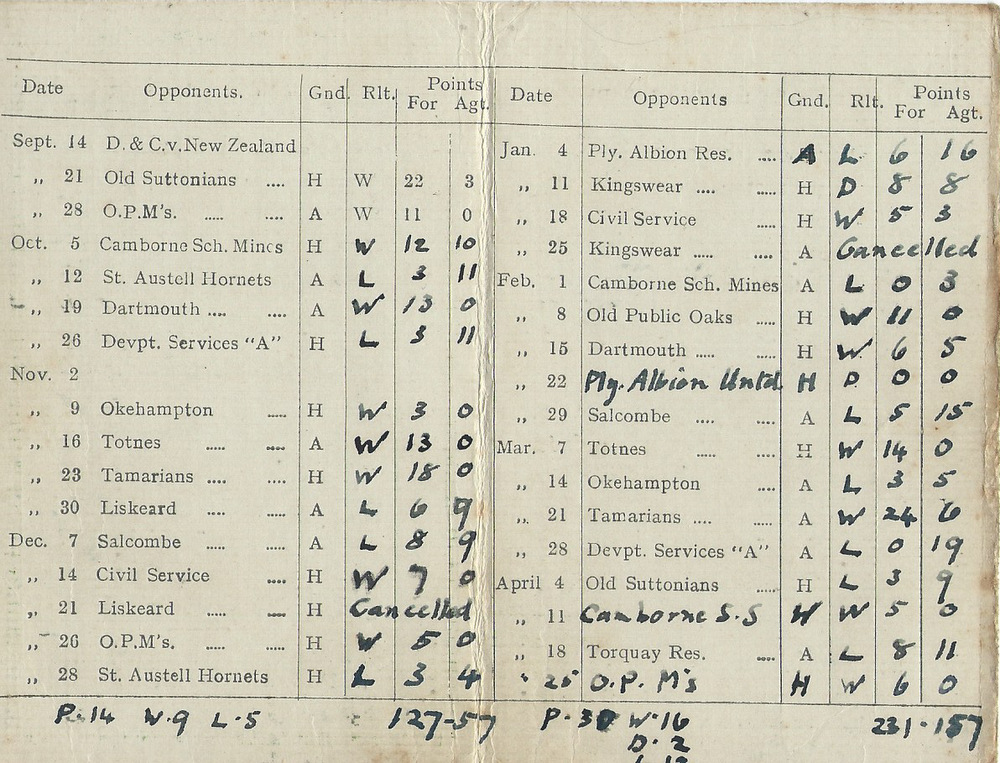 Date Opponents. Gnd. Rlt. Points For Agt.
Sept. 14 D. & C. v. New Zealand
„ 21 Old Suttonians .... H W 22 3
„ 28 O.P.M's. ..... .... A W 11 0
Oct. 5 Camborne Sch. Mines H W 12 10
„ 12 St. Austell Hornets A L 3 11
„ 19 Dartmouth .... .... A W 13 0
„ 26 Devpt. Services "A" H L 3 11
Nov. 2
„ 9 Okehampton ..... H W 3 0
„ 16 Totnes ..... .... A W 13 0
„ 23 Tamarians ..... .... H W 18 0
„ 30 Liskeard ..... .... A L 6 9
Dec. 7 Salcombe ..... ..... A L 8 9
„ 14 Civil Service .... H W 7 0
„ 21 Liskeard ..... .... H Cancelled
„ 26 O.P.M's. ..... ..... H W 5 0
„ 28 St. Austell Hornets H L 3 4
P.14 W.9 L.5 127-57
Date Opponents Gnd. Rlt. Points For Agt.
Jan. 4 Ply. Albion Res. .... A L 6 16
„ 11 Kingswear .... .... H D 8 8
„ 18 Civil Service H W 5 3
„ 25 Kingswear ..... .... A Cancelled
Feb. 1 Camborne Sch. Mines A L 0 3
„ 8 Old Public Oaks ..... H W 11 0
„ 15 Dartmouth ..... ..... H W 6 5
„ 22 Ply. Albion Untd. H D 0 0
„ 29 Salcombe ..... .... A L 5 15
Mar. 7 Totnes ..... .... H W 14 0
„ 14 Okehampton .... A L 3 5
„ 21 Tamarians .... .... A W 24 6
„ 28 Devpt. Services "A" A L 0 19
April 4 Old Suttonians H L 3 9
„ 11 Camborne S.S H W 5 0
„ 18 Torquay Res. ..... A L 8 11
" 25 O.P. M's H W 6 0
P.30 W.16 231-157
D.2